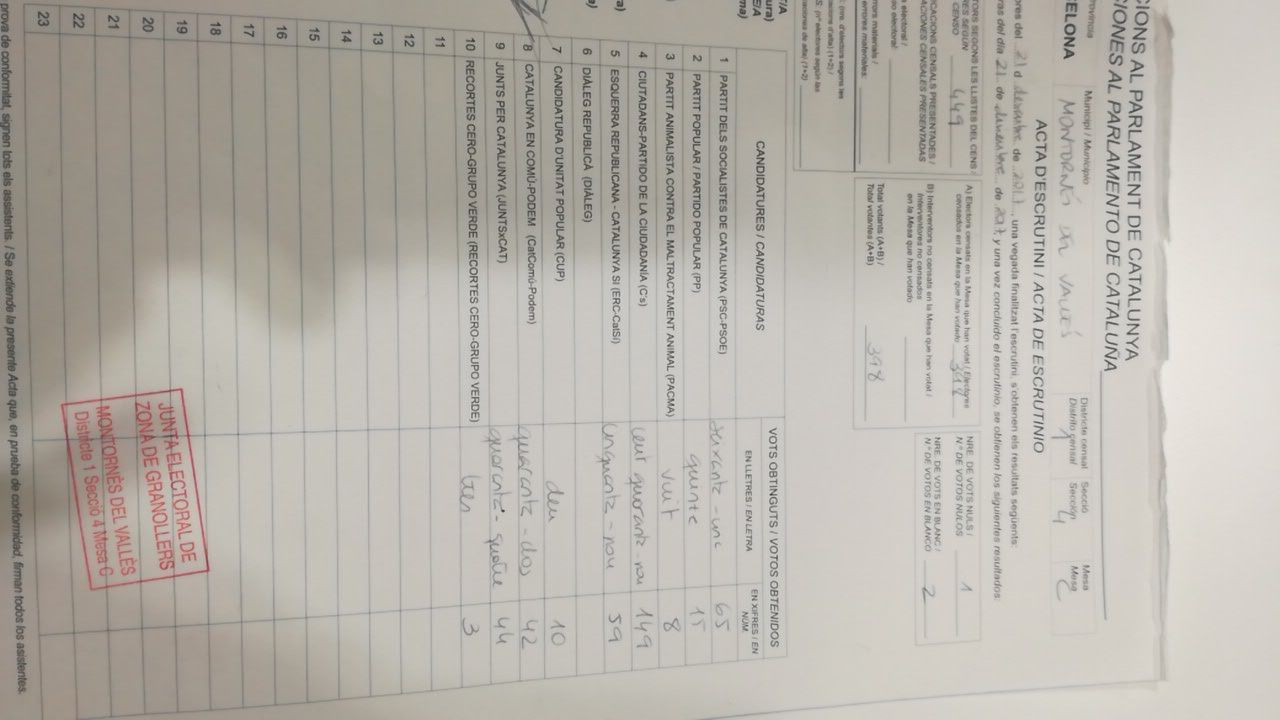 CIONS AL PARLAMENT DE CATALUNYA
CIONES AL PARLAMENTO DE CATALUÑA
Província
CELONA
Municipi / Municipio
MONTORNÉS DEL VALLÉS
Districte censal
Distrito censal
1
Secció
Sección
4
Mesa
Mesa
C
ACTA D'ESCRUTINI / ACTA DE ESCRUTINIO
ores del 21 d de 2017, una vegada finalitzat l'escrutini, s'obtenen els resultats següents:
oras del día 21 de de 2017 y una vez concluido el escrutinio, se obtienen los siguientes resultados:
TORS SEGONS LES LLISTES DEL CENS /
RES SEGÚN
CENSO
449
CACIONS CENSALS PRESENTADES /
ACIONES CENSALES PRESENTADAS
A) Electors censats en la Mesa que han votat / Electores
censados en la Mesa que han votado 398
B) Interventors no censats en la Mesa que han votat /
Interventores no censados
en la Mesa que han votado
Total votants (A+B) /
Total votantes (A+B) 398
NRE. DE VOTS NULS /
N.º DE VOTOS NULOS 1
NRE. DE VOTS EN BLANC /
N.º DE VOTOS EN BLANCO 2
CANDIDATURES / CANDIDATURAS
VOTS OBTINGUTS / VOTOS OBTENIDOS
EN LLETRES / EN LETRA
EN XIFRES / EN NÚM.
1 PARTIT DELS SOCIALISTES DE CATALUNYA (PSC-PSOE) 65
2 PARTIT POPULAR / PARTIDO POPULAR (PP) quinze 15
3 PARTIT ANIMALISTA CONTRA EL MALTRACTAMENT ANIMAL (PACMA) vuit 8
4 CIUTADANS-PARTIDO DE LA CIUDADANÍA (C's) cent quaranta-nou 149
5 ESQUERRA REPUBLICANA - CATALUNYA SÍ (ERC-CatSí) cinquanta-nou 59
6 DIÀLEG REPUBLICÀ (DIÀLEG)
7 CANDIDATURA D'UNITAT POPULAR (CUP) deu 10
8 CATALUNYA EN COMÚ-PODEM (CatComú-Podem) quaranta-dos 42
9 JUNTS PER CATALUNYA (JUNTSxCAT) quaranta-quatre 44
10 RECORTES CERO-GRUPO VERDE (RECORTES CERO-GRUPO VERDE) tres 3
11
12
13
14
15
16
17
18
19
20
21
22
23
JUNTA ELECTORAL DE
ZONA DE GRANOLLERS
MONTORNÈS DEL VALLÈS
Districte 1 Secció 4 Mesa C
prova de conformitat, signen tots els assistents. / Se extiende la presente Acta que, en prueba de conformidad, firman todos los asistentes.